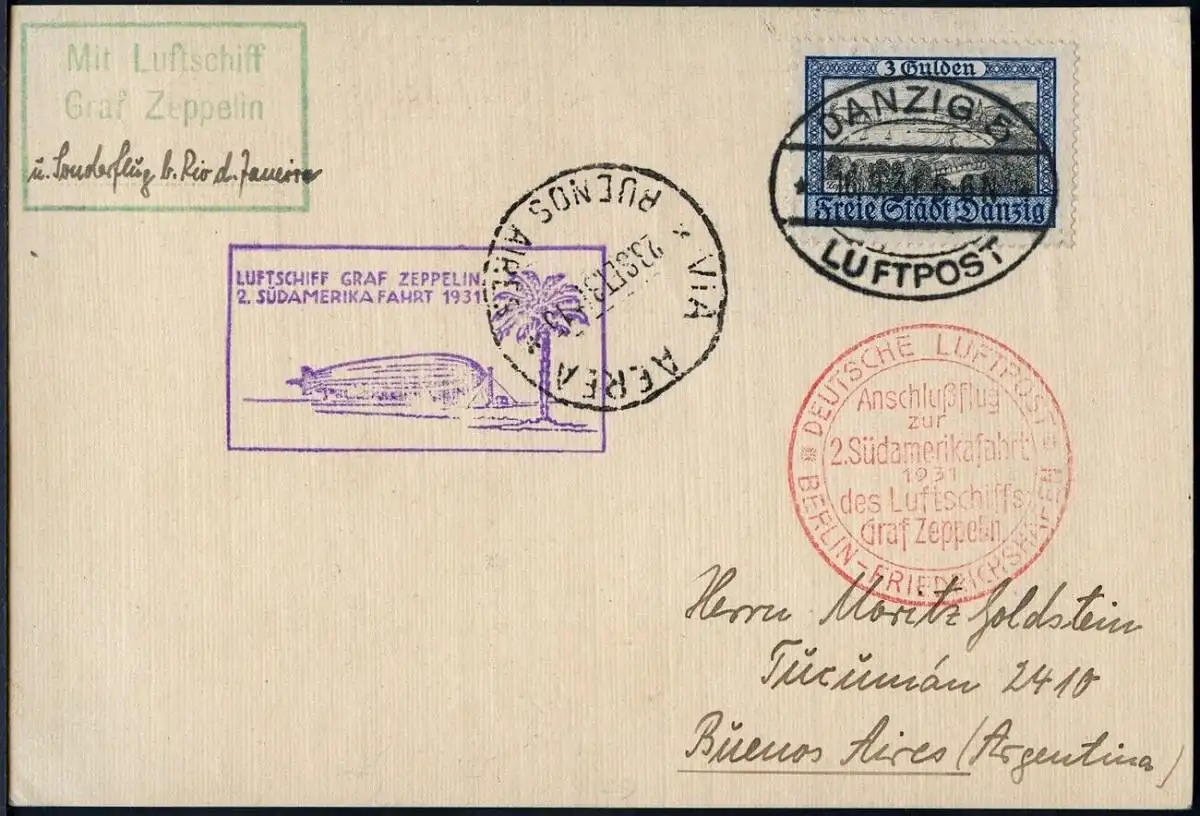 Mit Luftschiff
Graf Zeppelin
u. Sonderflug b. Rio d. Janeiro
3 Gulden
Freie Stadt Danzig
DANZIG 5
LUFTPOST
LUFTSCHIFF GRAF ZEPPELIN
2. SÜDAMERIKAFAHRT 1931
× VIA AEREA ×
BUENOS AIRES
DEUTSCHE LUFTPOST
Anschlußflug
zur
2. Südamerikafahrt
1931
des Luftschiffs
Graf Zeppelin
BERLIN-FRIEDRICHSHAFEN
Herrn Moritz Goldstein
Tucumán 2410
Buenos Aires (Argentina)